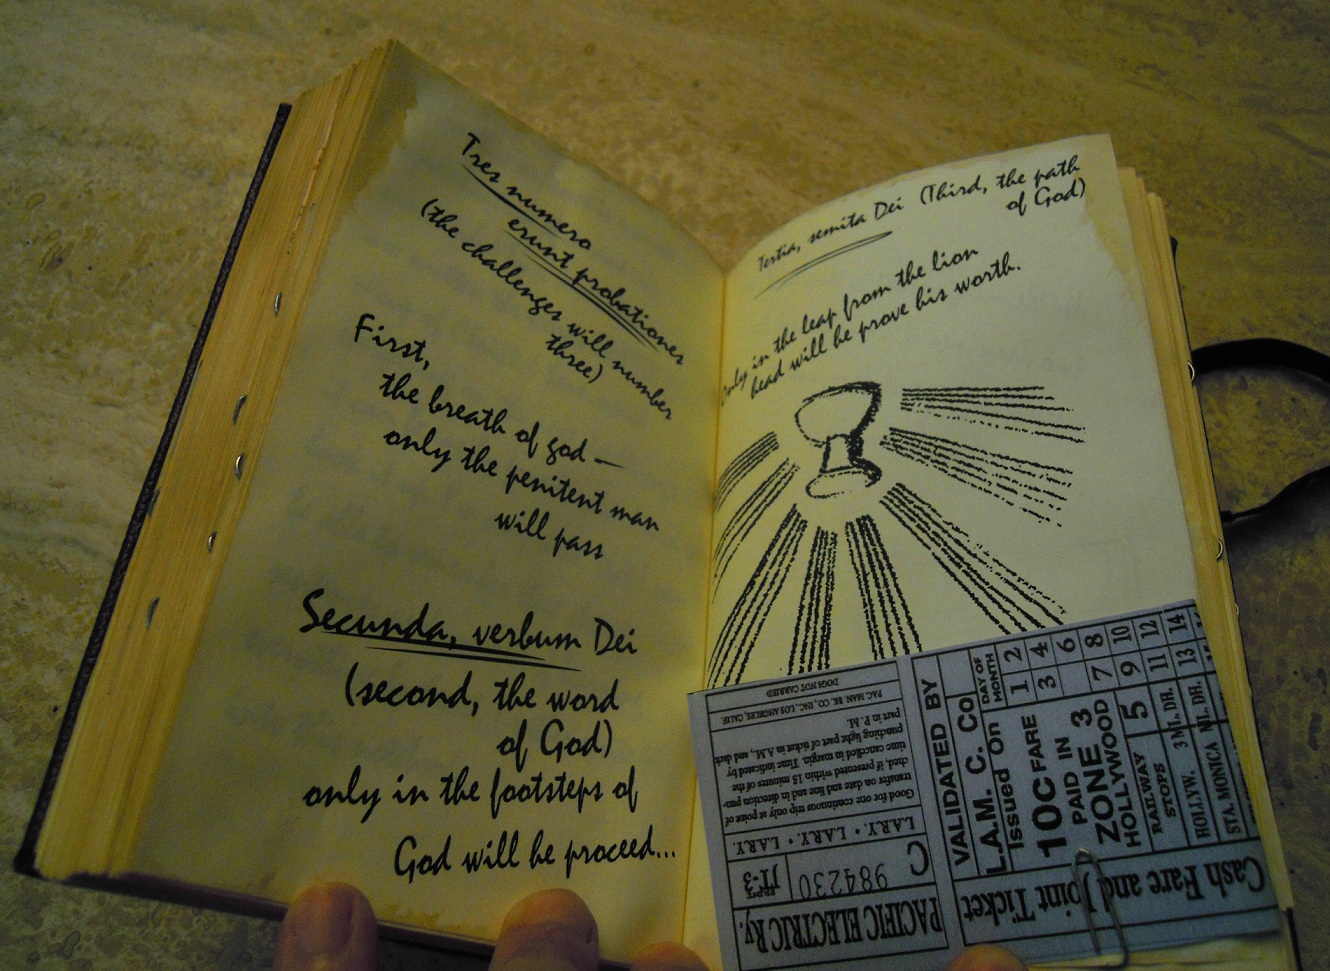 Tres numero
erunt probationes
(the challenges will number
three)
First,
the breath of god —
only the penitent man
will pass
Secunda, verbum Dei
(second, the word
of God)
only in the footsteps of
God will he proceed...
Tertia, semita Dei (Third, the path
of God)
Only in the leap from the lion
head will he prove his worth.
DOGS NOT CARRIED
PAC. MAN. BK. CO., INC., LOS ANGELES, CALIF.
Good for one continuous trip only at point of
transfer on date and line and in direction pun-
ched, if presented within 15 minutes of the
time cancelled in margin. Time indicated by
punching light part of ticket in A.M., and dark
part in P. M.
L.A.RY. • L.A.RY. • L.A.RY.
C
984230
JT-3
PACIFIC ELECTRIC Ry.
VALIDATED BY
L.A.M. C. Co
Issued On
DAY OF
MONTH
1 2
3 4
6
7 8
9 10
11 12
13 14
10C FARE
PAID IN
ZONE 3
HOLLYWOOD
5
RAILWAY
STOPS
3 ML. DH.
HOLLYW.
ML. DH.
STA. MONICA
Cash Fare and
Joint Ticket